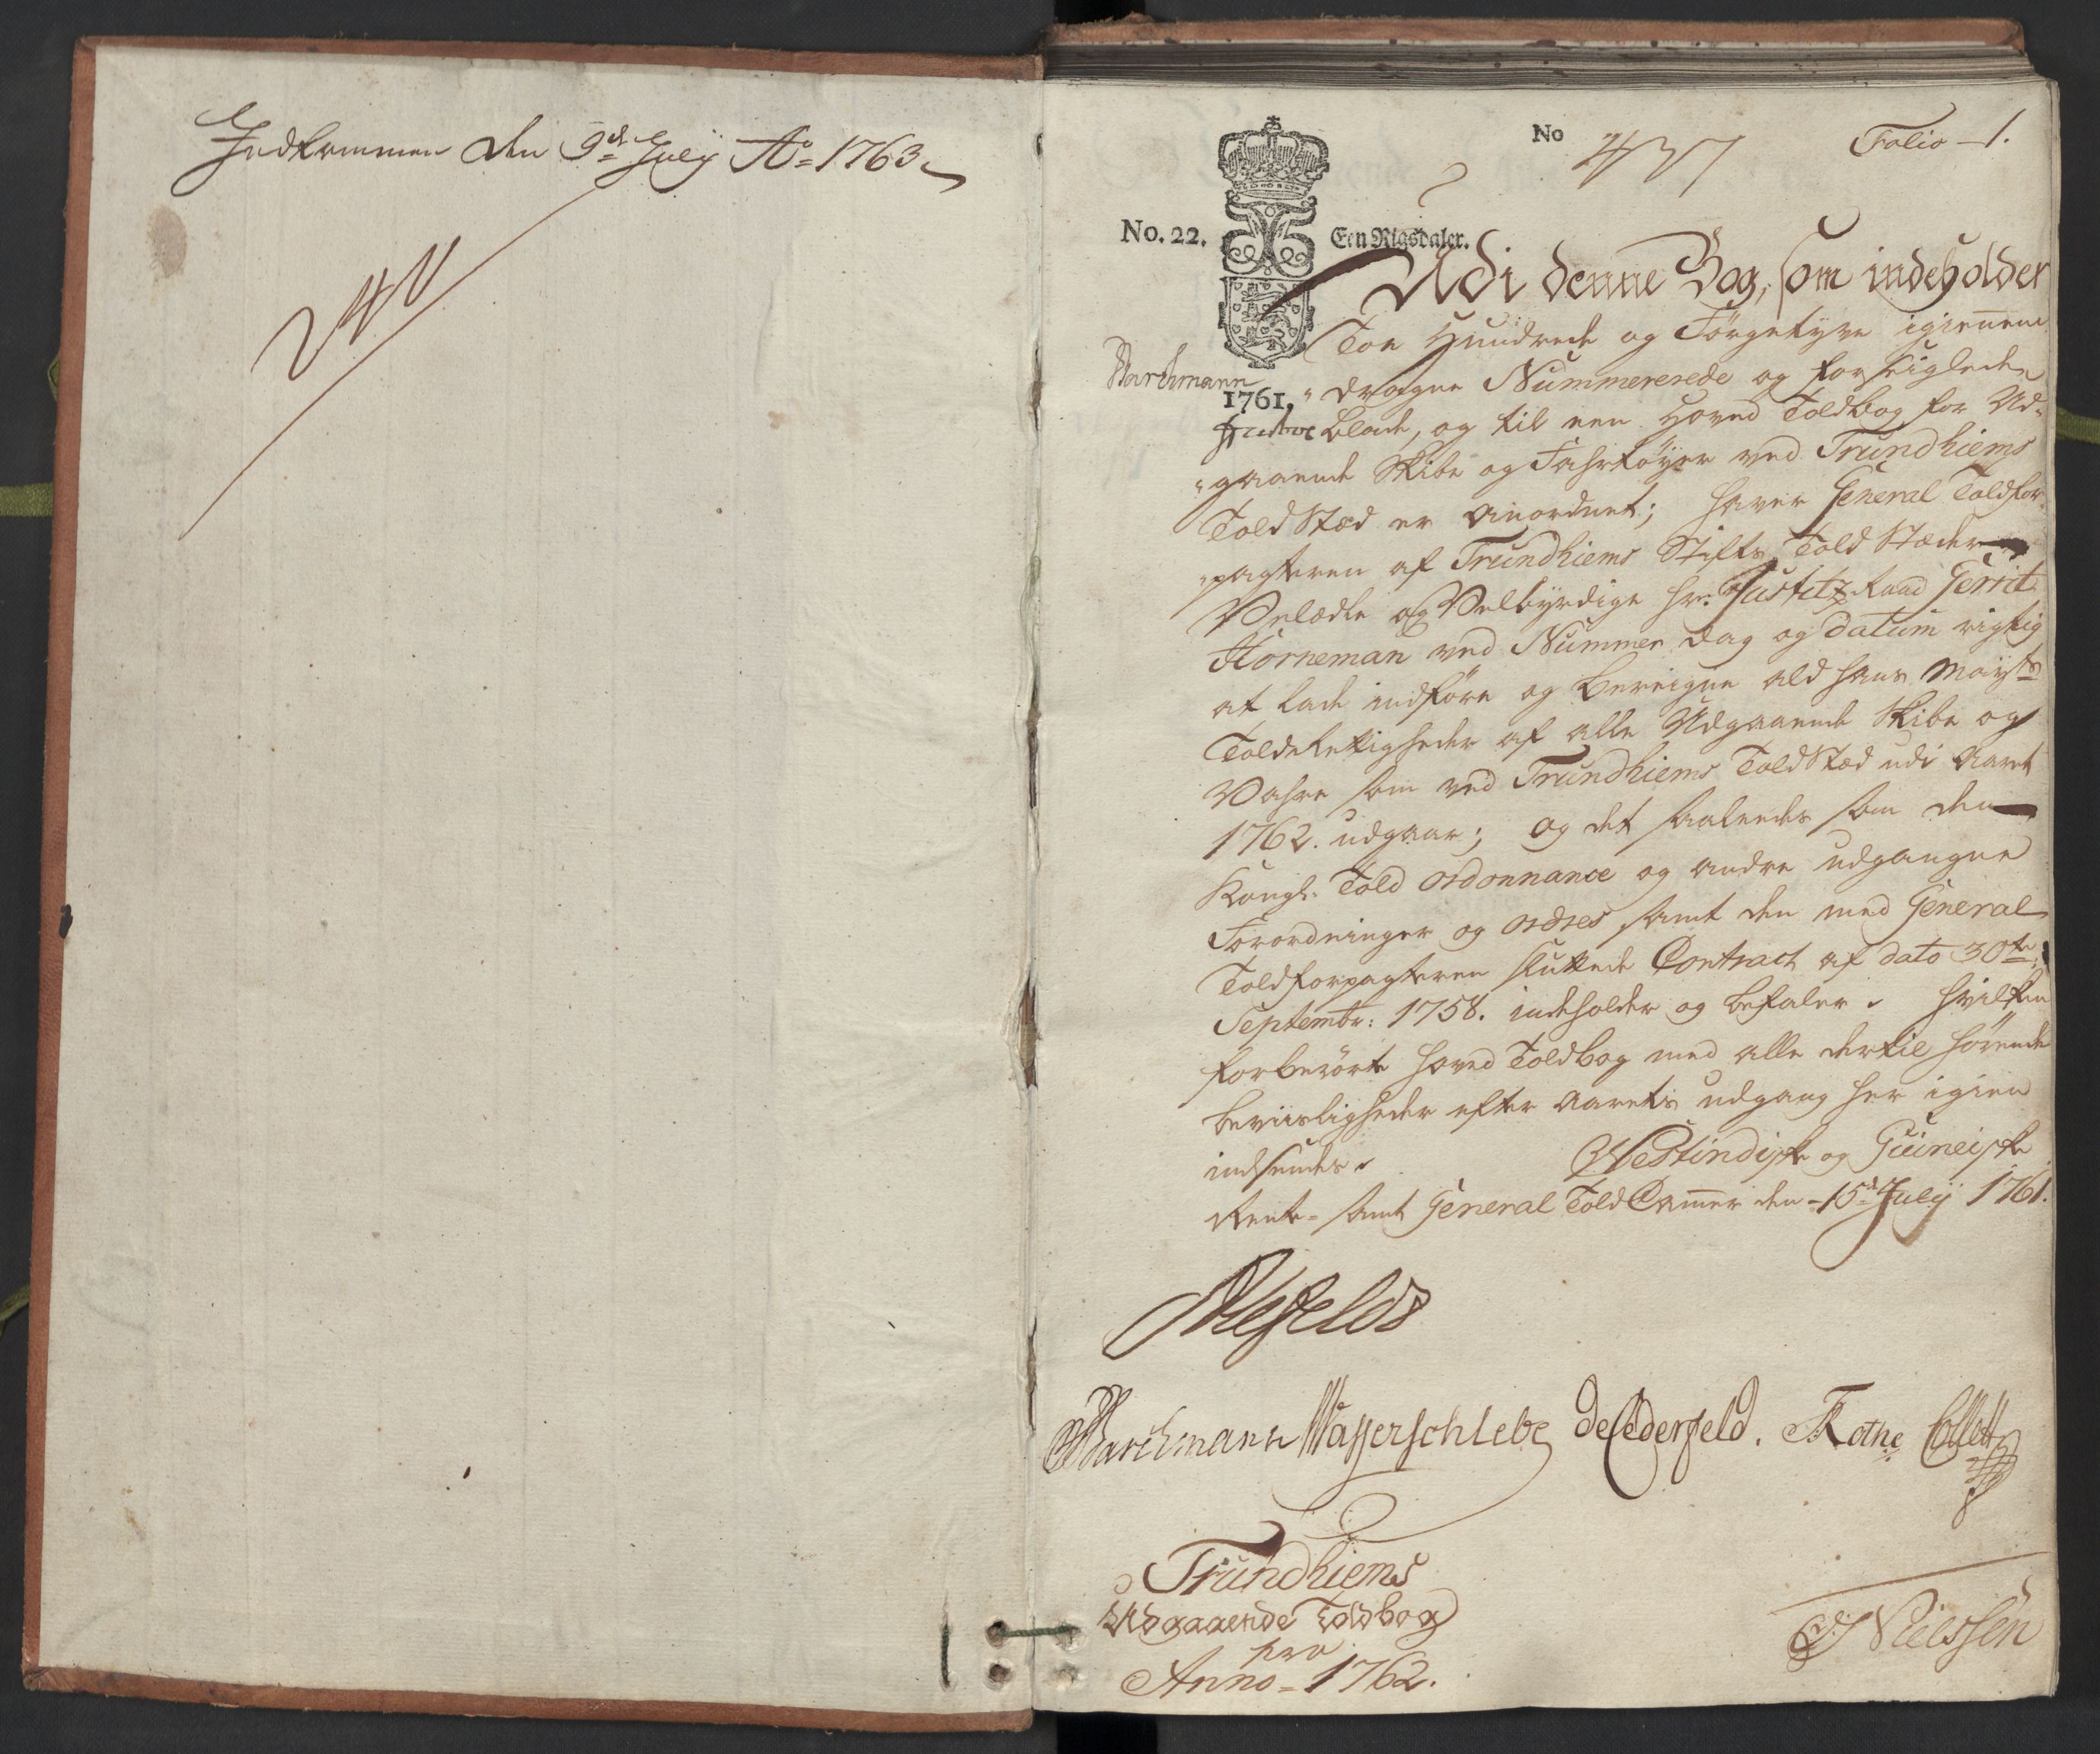 Indkommen den 9de July Ao 1763
No 437
Folio 1.
No. 22.
Een Rigsdaler.
Udi denne Bog, som indeholder
Toe Hundrede og Förgetyve igiennem
Barchmann
1761.
dragne Nummererede og forseiglede
blade, og til een Hoved Toldbog for Ud-
gaaende Skibe og Fahrtöyer ved Trundhiems
Told Stæd er anordnet; haver General Toldfor-
pagteren af Trundhiems Stifts Told Stæder
Velædle og Velbyrdige Hr: Justitz-Raad Gerrit
Horneman ved Nummer dag og datum rigtig
at lade indföre og bereigne ald Hans Mayts
Toldrettigheder af alle Udgaaende Skibe og
Vahre som ved Trundhiems Told Stæd udi Aaret
1762. udgaar; og det saaleedes som den
Kongl: Told ordonnance og andre udgangne
Forordninger og ordres samt den med General
Toldforpagteren sluttede Contract af dato 30te
Septembr: 1758. indeholder og befaler. Hvilken
forberörte Hoved Toldbog med alle dertil hörende
beviisligheder efter Aarets udgang her igien
indsendes.
Westindiske og Guineiske
Rente- samt General Told Cammer den 15de July 1761.
Barchmann Wasserschlebe de Cederfeld. Rothe Collett
Trundhiems
Udgaaende Toldbog
pro
Anno 1762.
Nielssen